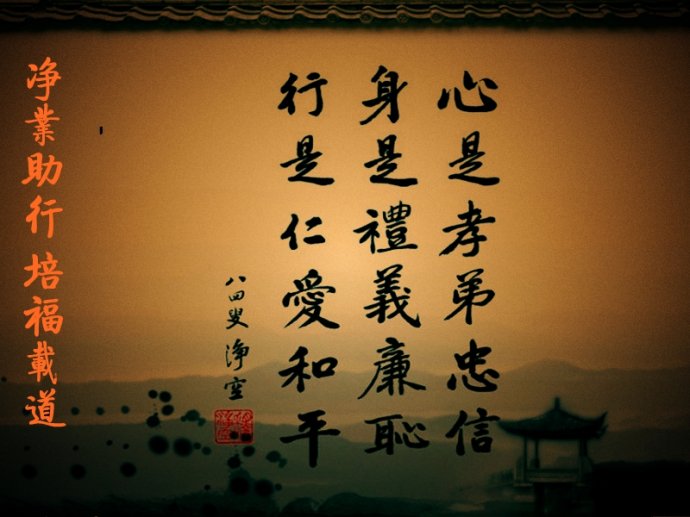 心是孝弟忠信
身是禮義廉恥
行是仁愛和平
八四叟 淨空
净業助行培福載道